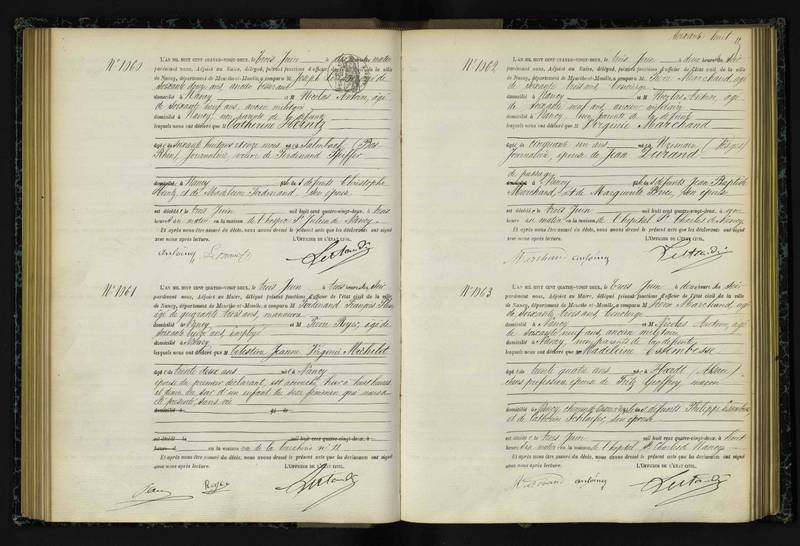 N° 1960
L'AN MIL HUIT CENT QUATRE-VINGT-DEUX, le trois Juin à dix heures du matin
pardevant nous, Adjoint au Maire, délégué pour les fonctions d'officier de l'état civil de la ville
de Nancy, département de Meurthe-et-Moselle, a comparu M. Joseph
soixante douze ans, ancien
domicilié à Nancy et M. Nicolas Antoine, âgé
de soixante neuf ans, ancien militaire
domicilié à Nancy, non parents de la défunte
lesquels nous ont déclaré que Catherine Heintz
âgée de soixante huit ans onze mois née à Salmbach (Bas
Rhin), journalière, veuve de Ferdinand Pfeiffer
domiciliée à Nancy fille des défunts Christophe
Heintz et de Madeleine Ferdinand, son épouse
est décédée le trois Juin mil huit cent quatre-vingt-deux, à trois
heures du matin en la maison de l'hospice St Julien de Nancy
Et après nous être assuré du décès, nous avons dressé le présent acte que les déclarants ont signé
avec nous après lecture. L'OFFICIER DE L'ÉTAT CIVIL,
antoine
N° 1961
L'AN MIL HUIT CENT QUATRE-VINGT-DEUX, le trois Juin à trois heures du soir
pardevant nous, Adjoint au Maire, délégué pour les fonctions d'officier de l'état civil de la ville
de Nancy, département de Meurthe-et-Moselle, a comparu M. Ferdinand François
âgé de quarante trois ans, manœuvre
domicilié à Nancy et M. Pierre Roger, âgé de
soixante ans, employé
domicilié à Nancy
lesquels nous ont déclaré que Célestine Jeanne Virginie Michelet
âgée de trente deux ans née à Nancy
épouse du premier déclarant, est accouchée hier à huit heures
et demie du soir d'un enfant du sexe féminin qui nous a
été présenté sans vie
en la maison rue de la n° 11
Et après nous être assuré du décès, nous avons dressé le présent acte que les déclarants ont signé
avec nous après lecture. L'OFFICIER DE L'ÉTAT CIVIL,
Roger
soixante huit
N° 1962
L'AN MIL HUIT CENT QUATRE-VINGT-DEUX, le trois Juin à deux heures du soir
pardevant nous, Adjoint au Maire, délégué pour les fonctions d'officier de l'état civil de la ville
de Nancy, département de Meurthe-et-Moselle, a comparu M. Pierre Marchand, âgé
de soixante trois ans, concierge
domicilié à Nancy et M. Nicolas Antoine, âgé
de soixante neuf ans, ancien militaire
domicilié à Nancy, non parents de la défunte
lesquels nous ont déclaré que Virginie Marchand
âgée de cinquante un ans née à (Vosges)
journalière, épouse de Jean Durand
de passage
à Nancy fille des défunts Jean Baptiste
Marchand, et de Marguerite son épouse
est décédée le trois Juin mil huit cent quatre-vingt-deux, à onze
heures du matin en la maison de l'hôpital St Charles de Nancy
Et après nous être assuré du décès, nous avons dressé le présent acte que les déclarants ont signé
avec nous après lecture. L'OFFICIER DE L'ÉTAT CIVIL,
Marchand antoine
N° 1963
L'AN MIL HUIT CENT QUATRE-VINGT-DEUX, le trois Juin à deux heures du soir
pardevant nous, Adjoint au Maire, délégué pour les fonctions d'officier de l'état civil de la ville
de Nancy, département de Meurthe-et-Moselle, a comparu M. Pierre Marchand, âgé
de soixante trois ans, concierge
domicilié à Nancy et M. Nicolas Antoine, âgé
de soixante neuf ans, ancien militaire
domicilié à Nancy, non parents de la défunte
lesquels nous ont déclaré que Madeleine
âgée de trente quatre ans née à Hoerdt (Alsace)
sans profession, épouse de Fritz Geoffroy, maçon
domiciliée à Nancy fille des défunts Philippe
et de Catherine son épouse
est décédée le trois Juin mil huit cent quatre-vingt-deux, à huit
heures du matin en la maison de l'hôpital St Charles de Nancy
Et après nous être assuré du décès, nous avons dressé le présent acte que les déclarants ont signé
avec nous après lecture. L'OFFICIER DE L'ÉTAT CIVIL,
Marchand antoine